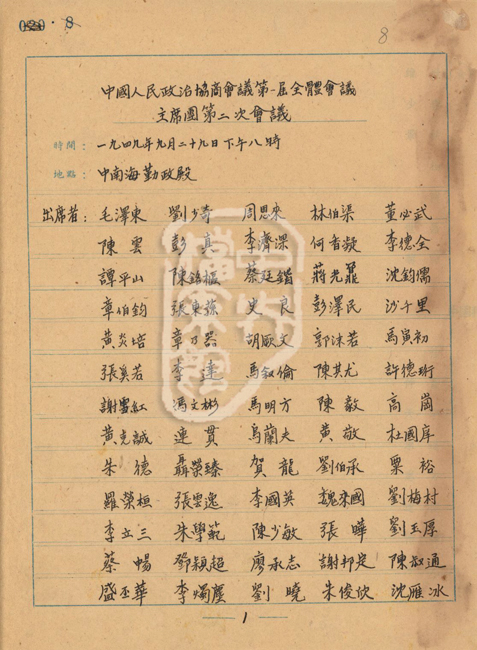 8
8
中國人民政治協商會議第一屆全體會議
主席團第二次會議
時間： 一九四九年九月二十九日下午八時
地點： 中南海勤政殿
出席者： 毛澤東 劉少奇 周恩來 林伯渠 董必武
陳雲 彭真 李濟深 何香凝 李德全
譚平山 陳銘樞 蔡廷鍇 蔣光鼐 沈鈞儒
章伯鈞 張東蓀 史良 彭澤民 沙千里
黃炎培 章乃器 胡厥文 郭沫若 馬寅初
張奚若 李達 馬叙倫 陳其尤 許德珩
謝雪紅 馮文彬 馬明方 陳毅 高崗
黃克誠 連貫 烏蘭夫 黃敬 杜國庠
朱德 聶榮臻 賀龍 劉伯承 粟裕
羅榮桓 張雲逸 李國英 魏來國 劉梅村
李立三 朱學範 陳少敏 張曄 劉玉厚
蔡暢 鄧穎超 廖承志 謝邦定 陳叔通
盛丕華 李燭塵 劉曉 朱俊欣 沈雁冰
1